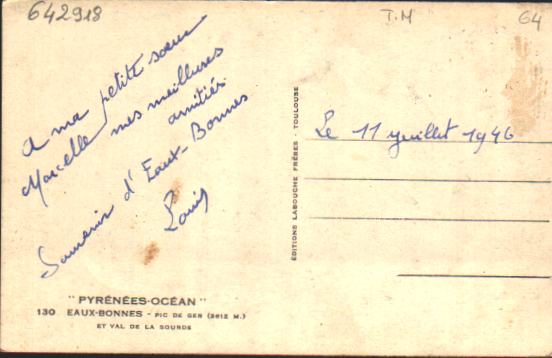 642918
T.M
64
A ma petite sœur
Marcelle mes meilleures
amitiés
Souvenir d'Eaux-Bonnes
Louis
Le 11 juillet 1946
ÉDITIONS LABOUCHE FRÈRES - TOULOUSE
" PYRÉNÉES-OCÉAN "
130 EAUX-BONNES - PIC DE GER (2612 M.)
ET VAL DE LA SOURDE